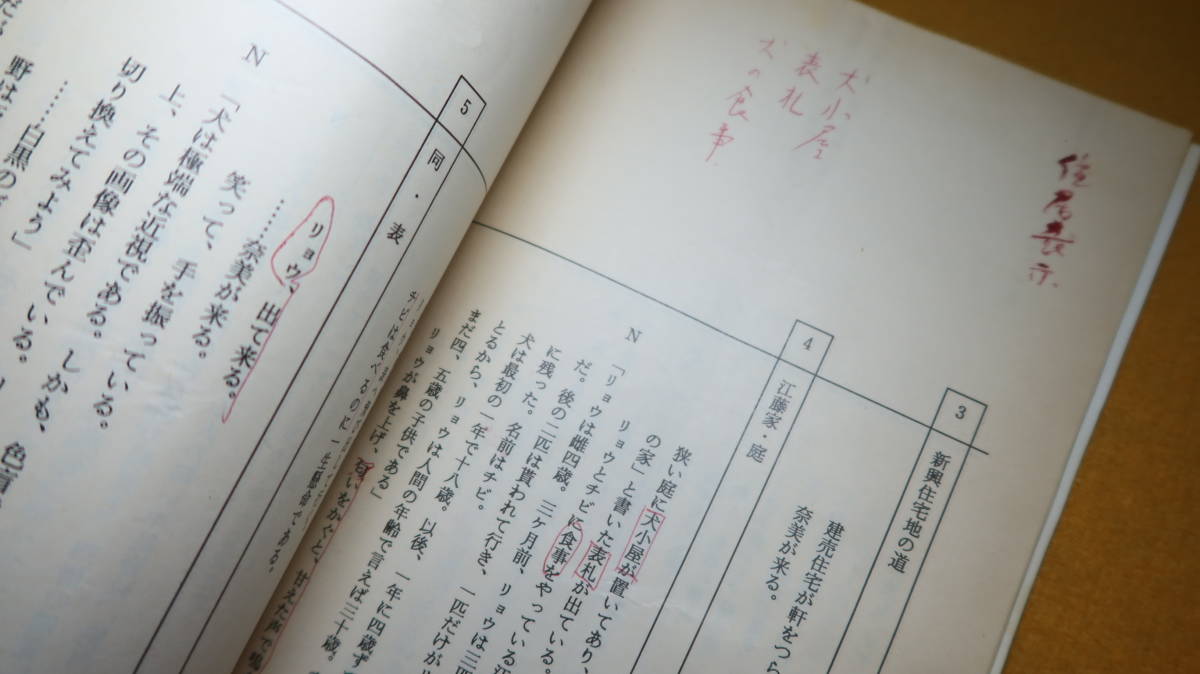 住居表示
犬小屋
表札
犬の食事
3
新興住宅地の道
建売住宅が軒をつら
奈美が来る。
4
江藤家・庭
狭い庭に犬小屋が置いてあり、
の家」と書いた表札が出ている。
リョウとチビに食事をやっている江
N
「リョウは雌四歳。三ケ月前、リョウは三匹
だ。後の二匹は貰われて行き、一匹だけが
に残った。名前はチビ。
犬は最初の一年で十八歳。以後、一年に四歳ず
とるから、リョウは人間の年齢で言えば三十歳。
まだ四、五歳の子供である」
リョウが鼻を上げ、匂いをかぐと、甘えた声で鳴
チビは食べるのに一生懸命である。
5
同・表
リョウ、出て来る。
……奈美が来る。
笑って、手を振っている。
N
「犬は極端な近視である。しかも、
上、その画像は歪んでいる。
切り換えてみよう」
……白黒の